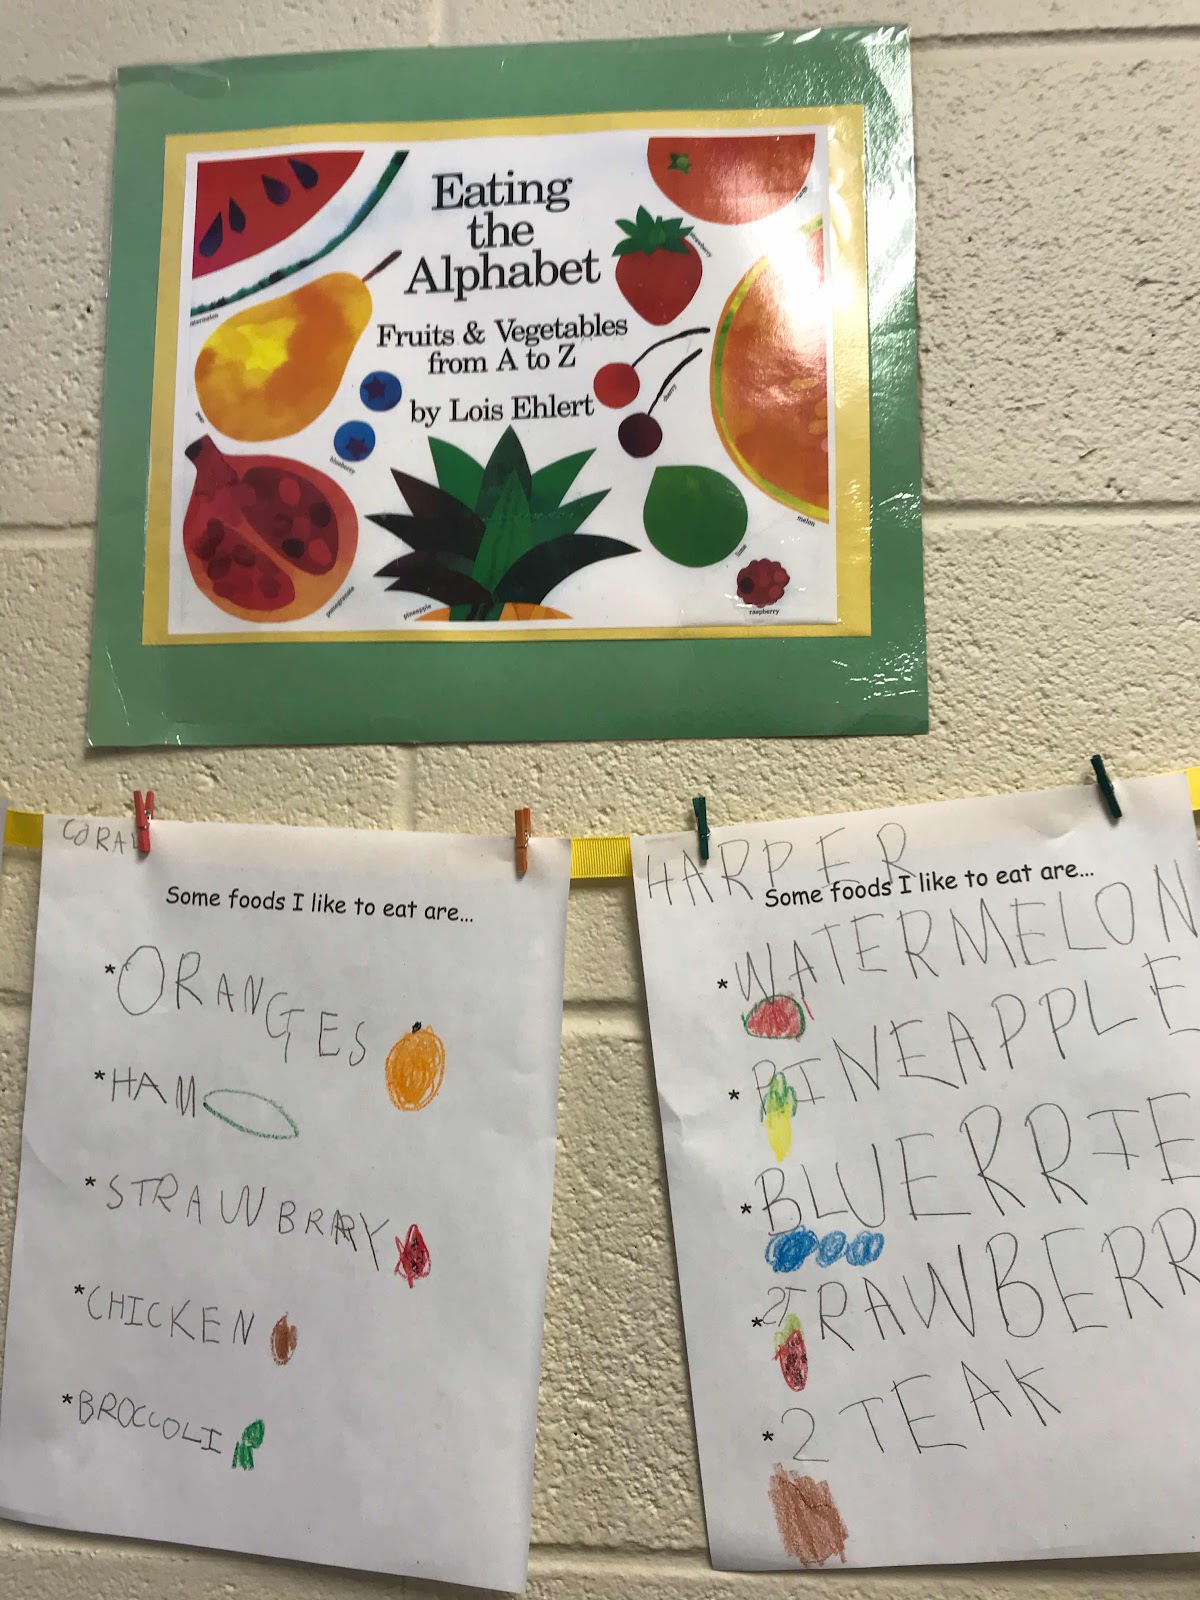 Eating
the
Alphabet
Fruits & Vegetables
from A to Z
by Lois Ehlert
strawberry
cherry
blueberry
melon
lime
pomegranate
pineapple
raspberry
CORAL
Some foods I like to eat are...
*ORANGES
*HAM
*STRAWBRARY
*CHICKEN
*BROCCOLI
HARPER
Some foods I like to eat are...
*WATERMELON
*PINEAPPLE
*BLUERRIE
*2TRAWBERR
*2TEAK